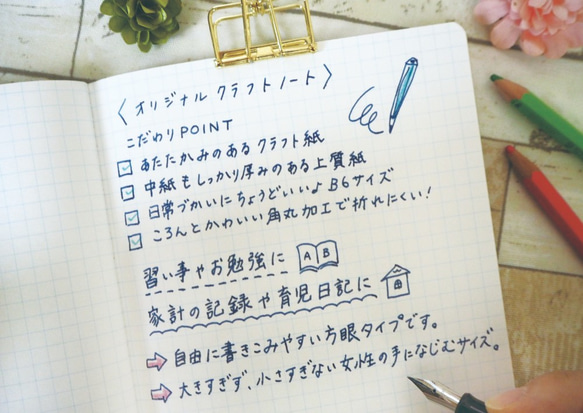 〈オリジナル クラフトノート〉
こだわりPOINT
あたたかみのあるクラフト紙
中紙もしっかり厚みのある上質紙
日常づかいにちょうどいいよB6サイズ
ころんとかわいい角丸加工で折れにくい!
習い事やお勉強に A B
家計の記録や育児日記に
自由に書きこみやすい方眼タイプです。
大きすぎず、小さすぎない女性の手になじむサイズ。